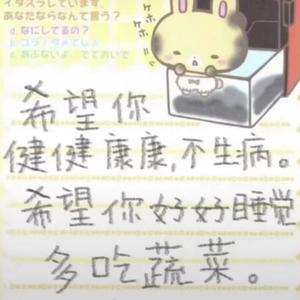 イタズラしています。
あなたならなんて言う？
a. なにしてるの？
b. コラ！ダメでしょ
c. あぶないよ、でておいで
ケホ
ケホ
ケホ
希望你
健健康康,不生病。
希望你好好睡觉
多吃蔬菜。